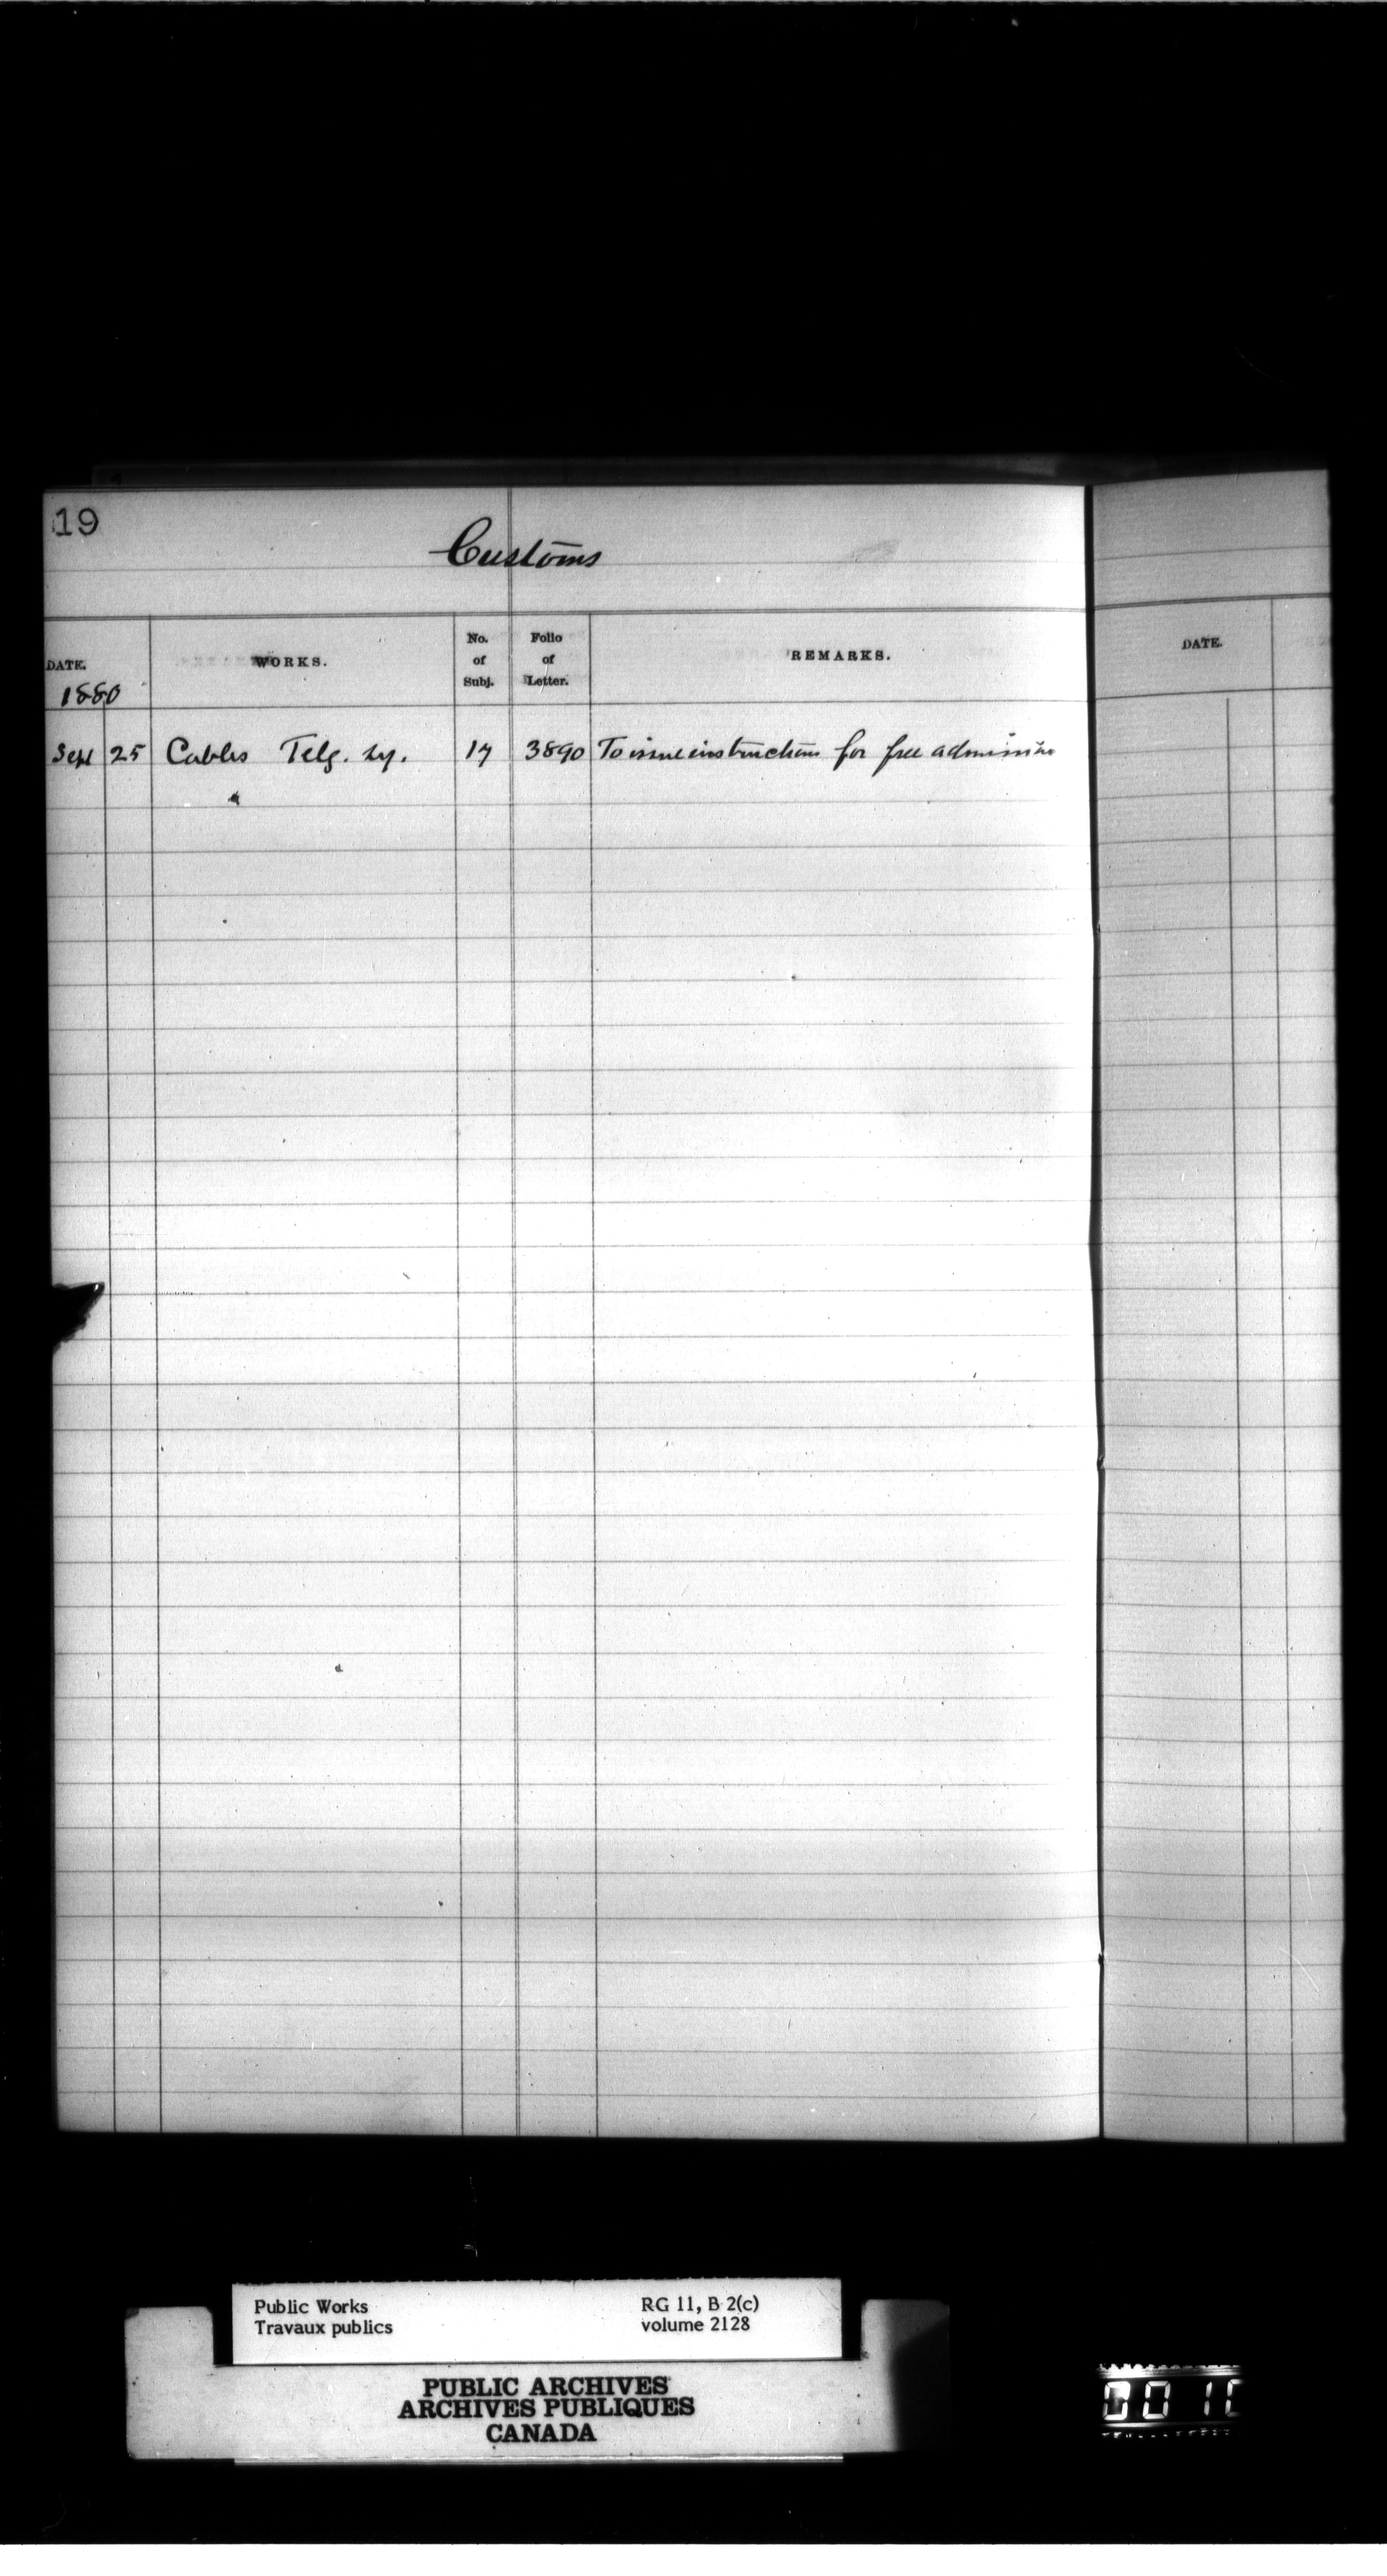 19
Customs
DATE. WORKS. No. of Subj. Folio of Letter. REMARKS. DATE.
1880
Sept 25 Cables Telg. Sy. 17 3890 To issue instructions for free admission
Public Works RG 11, B 2(c)
Travaux publics volume 2128
PUBLIC ARCHIVES
ARCHIVES PUBLIQUES
CANADA